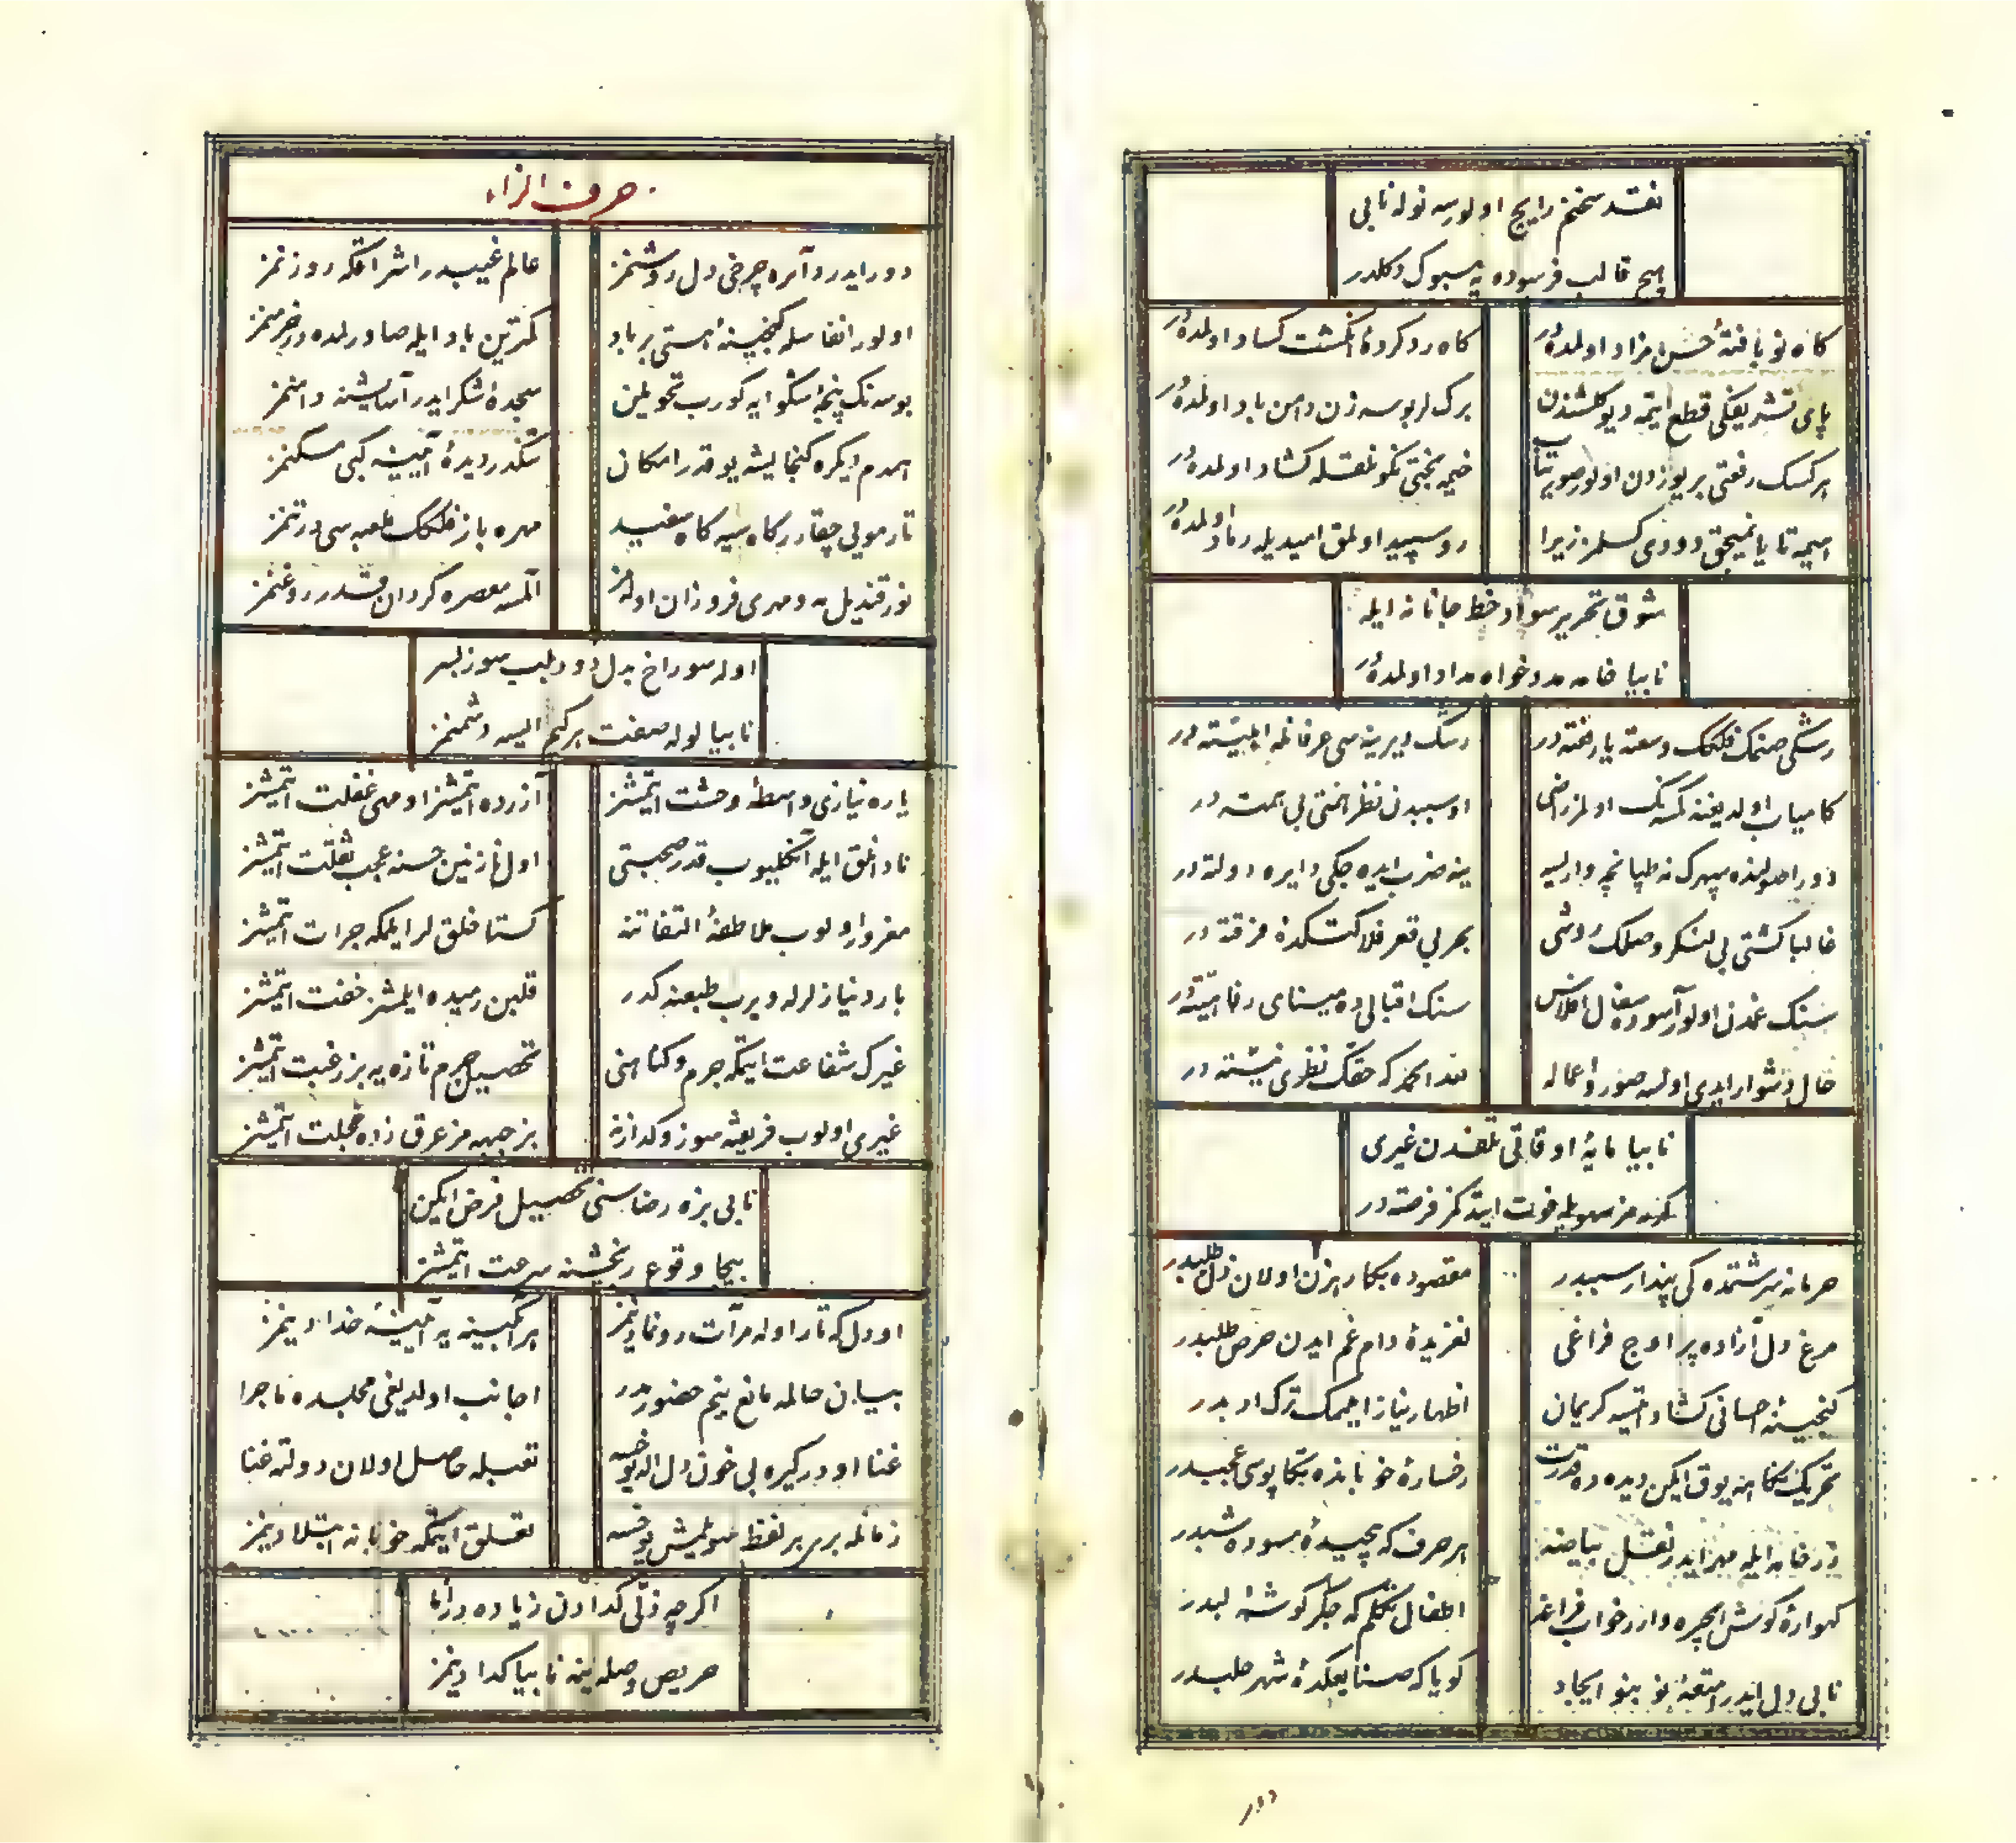 نقد سخنم رايج اولورسه نوله نابی
هيچ قالب فرسوده يه مسبوك دكلدر
كاه نو بافتهٔ حسن مزاد اولمده‌در
كاه رد كردهٔ انكشت كساد اولمده‌در
پای تشريفكی قطع ايتمه ديو كلشندن
برك لر بوسه زن دامن باد اولمده‌در
هر كسك رفعتی بر يوزدن اولور صورتياب
خيمه بختی نكونلقله كشاد اولمده‌در
هيمه تا يانميجق دودی كسلمز زيرا
رو سپيد اولمق اميديله رماد اولمده‌در
شوق تحرير سواد خط جانانه ايله
نابيا خامه مدد خواه مداد اولمده‌در
رشكی صنمك فلكك وسعته يا رفعته در
رشك ديرينه سی عرفانله اهليته در
كامياب اولديغنه كمسه نك اولمز راضی
او سببدن نظر اهنتی بی همته در
دور اصولنده سپهرك نه طپانچه وار ايسه
ينه ضرب ايده جكی دايره دولته در
غالبا كشتی بی لنكر وصلك روشی
بحر بی قعر فلاكتكدهٔ فرقته در
سنك غمدن اولور آسوده سفال افلاس
سنك اقبالی ده مينای رفاهيته در
حال دشوار ايدی اولسه صور و اعماله
لله الحمد كه حقك نظری نيته در
نابيا مايهٔ اوقاتی تلفدن غيری
نه‌مز سهويله فوت ايتدكمز فرصته در
حرمانه سرشتمده كی پندار سببدر
مقصوده بكا رهزن اولان ذل طلبدر
مرغ دل آزاده پر اوج فراغی
لغزيدهٔ دام غم ايدن حرص طلبدر
كنجينهٔ احسانی كشاد ايتسه كريمان
اظهار نياز ايتمك ترك ادبدر
تحريك نكاهنه يوق ايكن ديده ده قدرت
رخسارهٔ خوبانده تكاپوسی عجبدر
زر خامه ايله مهر ايدر نقل بياضنه
هر حرف كه پيچيدهٔ مسودهٔ شبدر
كهوارهٔ كوش ايچره وارر خواب فراغه
اطفال تكلم كه جكر كوشهٔ لبدر
نابی دل ايدر امتعهٔ نو بنو ايجاد
كويا كه صنايعكدهٔ شهر حلبدر
دور
حرف الزاء
دور ايدر دآئره چرخی دل روشنمز
عالم غيبدر اشراقكه روزنمز
اولور انفاسله كنجينهٔ هستی بر باد
كمترين باد ايله صاورلمده در خرمنمز
بوسه نك پنجهٔ شكوايه كورب تحويلن
سجدهٔ شكر ايدر آسايشنه دامنمز
همدم ديكره كنجايشه يوقدر امكان
تنكدر ديدهٔ آيينه كبی مسكنمز
تار مويی چقادر كاه سيه كاه سفيد
مهره باز فلكك لعبه سی در تنمز
نور قنديل مه و مهری فروزان اوله‌مز
آلمسه معصره كردان قدر روغنمز
اوله سوراخ بدل دود بلب سوز بسر
نابيا لوله صفت بركم ايسه دشمنمز
ياره نيازی واسطهٔ وحشت ايتمشز
آزرده ايتمشز او مهی غفلت ايتمشز
نادانلق ايله آكلميوب قدر صحبتی
اول نازنين حسنه عجب ثقلت ايتمشز
مغرور اولوب ملاطفهٔ التفاتنه
كستاخلق لر ايلمكه جرات ايتمشز
بارد نيازلرله ويرب طبعنه كدر
قلبن رميده ايلمشز خفت ايتمشز
غيرك شفاعت ايتمكه جرم و كناهنی
تحصيل جرم تازه يه بز رغبت ايتمشز
غيری اولوب فريفتهٔ سوز و كدازه
بز جبهه مز عرق زدهٔ خجلت ايتمشز
نابی بزه رضاسنی تحصيل فرض ايكن
بيجا وقوع رنجشنه سرعت ايتمشز
او دل كه تار اوله مرآت رونما ديمز
هر آبكينه يه آيينهٔ خدا ديمز
بيان حالمه مانع بنم حضوردر
اجانب اولديغی مجلسده ماجرا
غنا اودر كيره بی خون دل اله يوخسه
تعبله حاصل اولان دولته غنا
زمانله بر بر لفظ سويلمش يوخسه
تعلق ايتمكه خوبانه مبتلا ديمز
اكرچه ذلی كدادن زياده در اما
حريص وصله ينه نابيا كدا ديمز